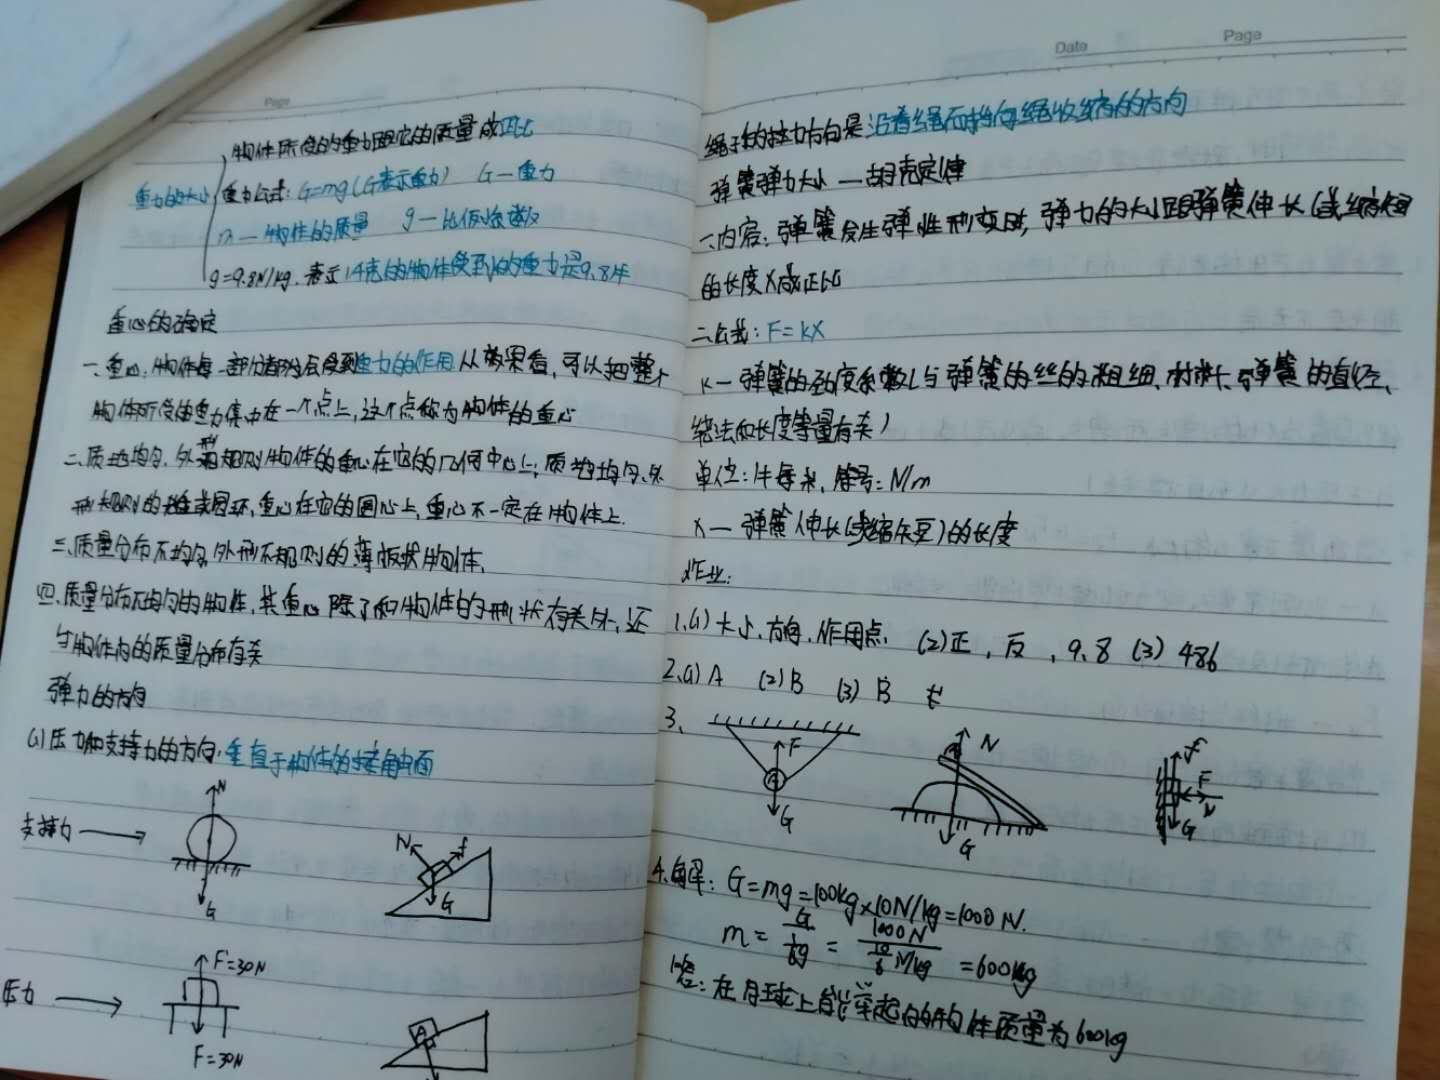 Page
物体所受的重力跟它的质量成正比
重力的大小
重力公式: G=mg(G表示重力) G—重力
m—物体的质量 g—比例常数
g=9.8N/kg. 表示1千克的物体受到的重力是9.8牛
重心的确定
一、重心: 物体每一部分都会受到重力的作用 从效果看, 可以把整个
物体所受的重力集中在一个点上, 这个点称为物体的重心
二、质地均匀, 外形规则物体的重心在它的几何中心上; 质地均匀、外
形规则的 圆环, 重心在它的圆心上, 重心不一定在物体上.
三、质量分布不均匀, 外形不规则的薄板状物体.
四、质量分布不均匀的物体, 其重心除了和物体的形状有关外, 还
与物体内的质量分布有关
弹力的方向
(1)压力和支持力的方向: 垂直于物体的接触面
支持力
N
G
N
f
G
压力
F'=30N
F=30N
A
Date Page
绳子的拉力方向是沿着绳而指向绳收缩的方向
弹簧弹力大小—胡克定律
一、内容: 弹簧发生弹性形变时, 弹力的大小跟弹簧伸长(或缩短)
的长度X成正比
二、公式: F=kX
K—弹簧的劲度系数(与弹簧的丝的粗细、材料、弹簧的直径、
绕法和长度等量有关)
单位: 牛每米, 符号: N/m
X—弹簧伸长(或缩短)的长度
作业:
1.(1)大小、方向、作用点. (2)正, 反, 9.8 (3) 486
2.(1) A (2) B (3) B
3.
F
G
N
G
f
F
N
G
4.解: G=mg=100kg×10N/kg=1000N.
m= G/⅙g = 1000N/(10/6 N/kg) =600kg
答: 在月球上能举起的物体质量为600kg